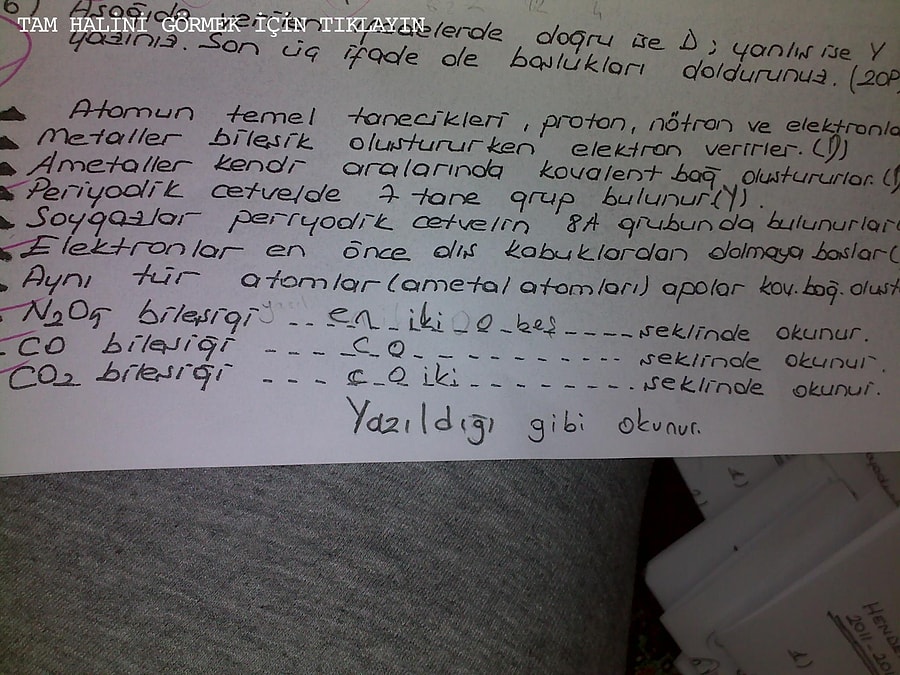 6) Aşağıda verilen ifadelerde doğru ise D; yanlış ise Y
TAM HALİNİ GÖRMEK İÇİN TIKLAYIN
yazınız. Son üç ifade de boşlukları doldurunuz. (20P)
Atomun temel tanecikleri, proton, nötron ve elektronla
Metaller bileşik oluştururken elektron verirler. (D)
Ametaller kendi aralarında kovalent bağ oluştururlar. (
Periyodik cetvelde 7 tane grup bulunur (Y).
Soygazlar periyodik cetvelin 8A grubunda bulunurlar(
Elektronlar en önce dış kabuklardan dolmaya başlar (
Aynı tür atomlar (ametal atomları) apolar kov. bağ. oluşt
N2O5 bileşiği --- en iki o beş ---- şeklinde okunur.
CO bileşiği ---- C O ---------- şeklinde okunur.
CO2 bileşiği --- c O iki ------- şeklinde okunur.
Yazıldığı gibi okunur.
1)
HENDE
2011-20
1)